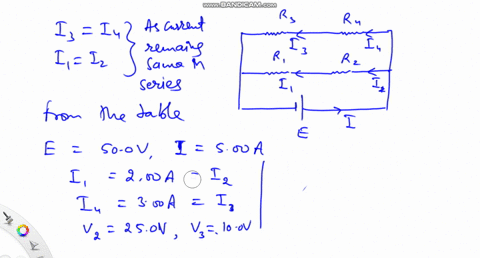 WWW.BANDICAM.COM
I₃ = I₄
I₁ = I₂
As current
remaing
same in
series
R₃ R₄
I₃ I₄
R₁ R₂
I₁ I₂
E I
from the table
E = 50.0V, I = 5.00A
I₁ = 2.00A = I₂
I₄ = 3.00A = I₃
V₂ = 25.0V, V₃ = 10.0V